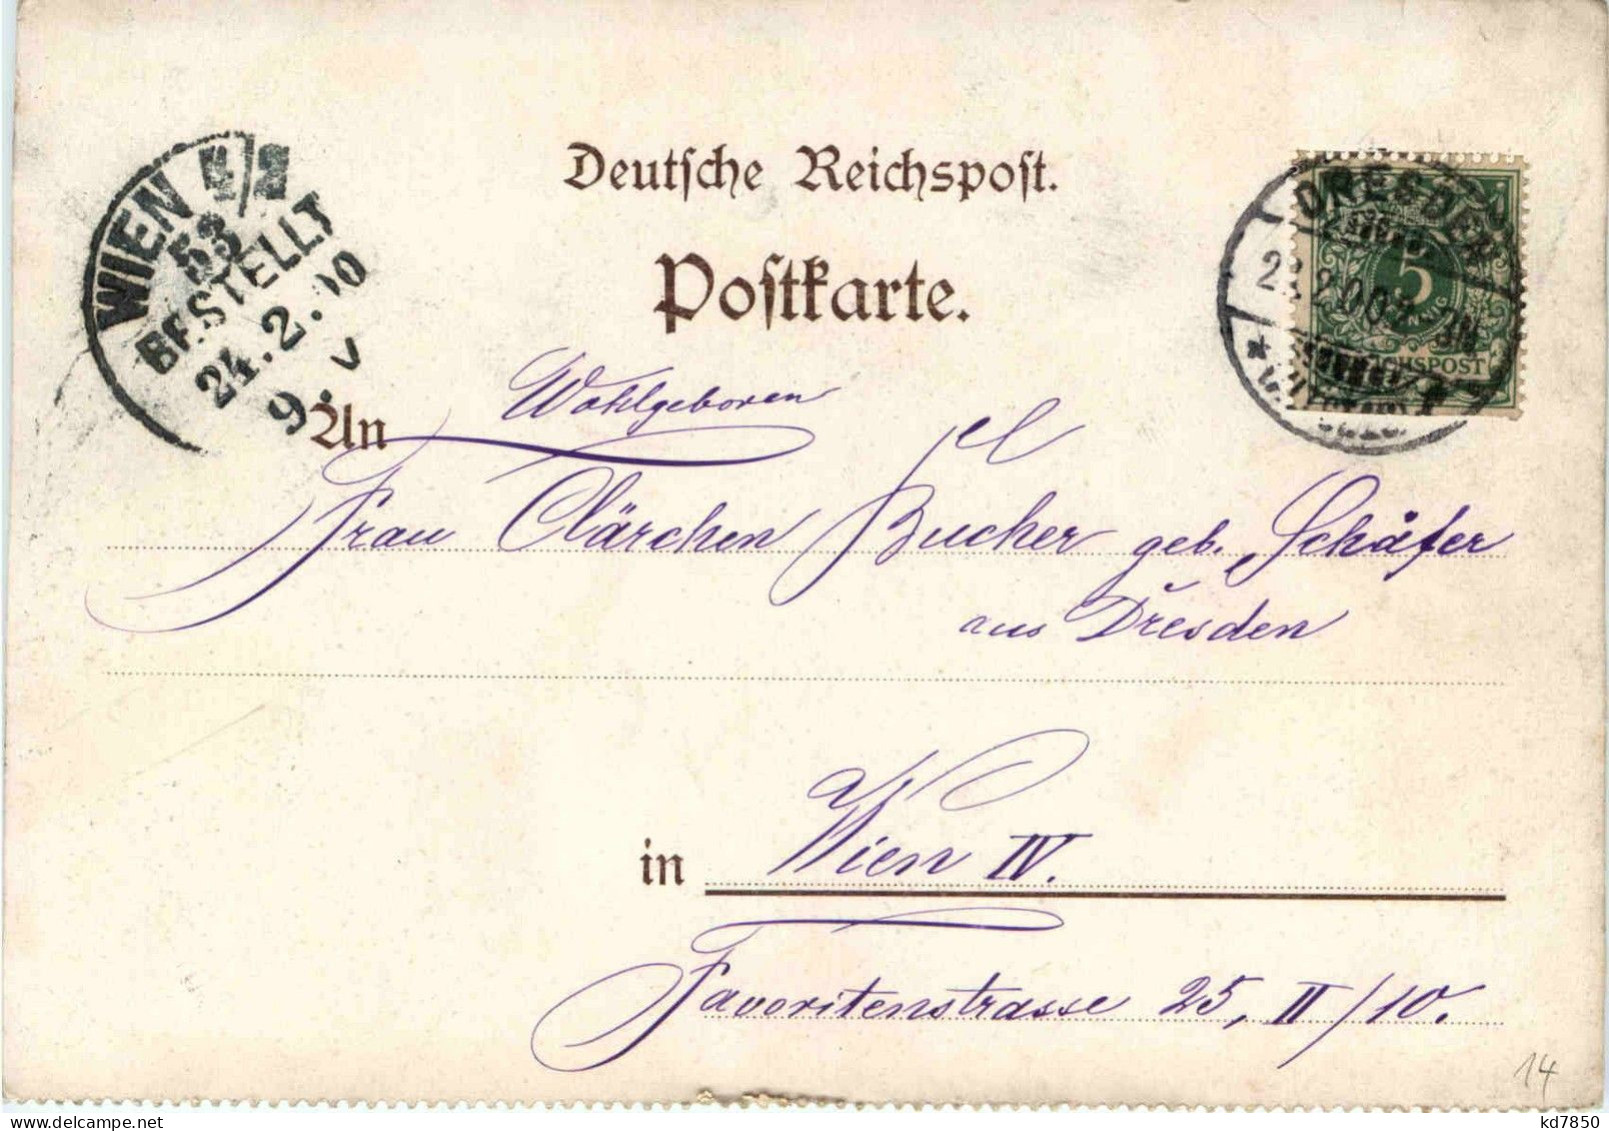 Deutsche Reichspost.
Postkarte.
WIEN 4/2
53
BESTELLT
24.2.00
9.V
DRESDEN
5
REICHSPOST
An
Wohlgeboren
Frau Clärchen Bucher geb. Schäfer
aus Dresden
in Wien IV.
Favoritenstrasse 25, II/10.
14
kd7850